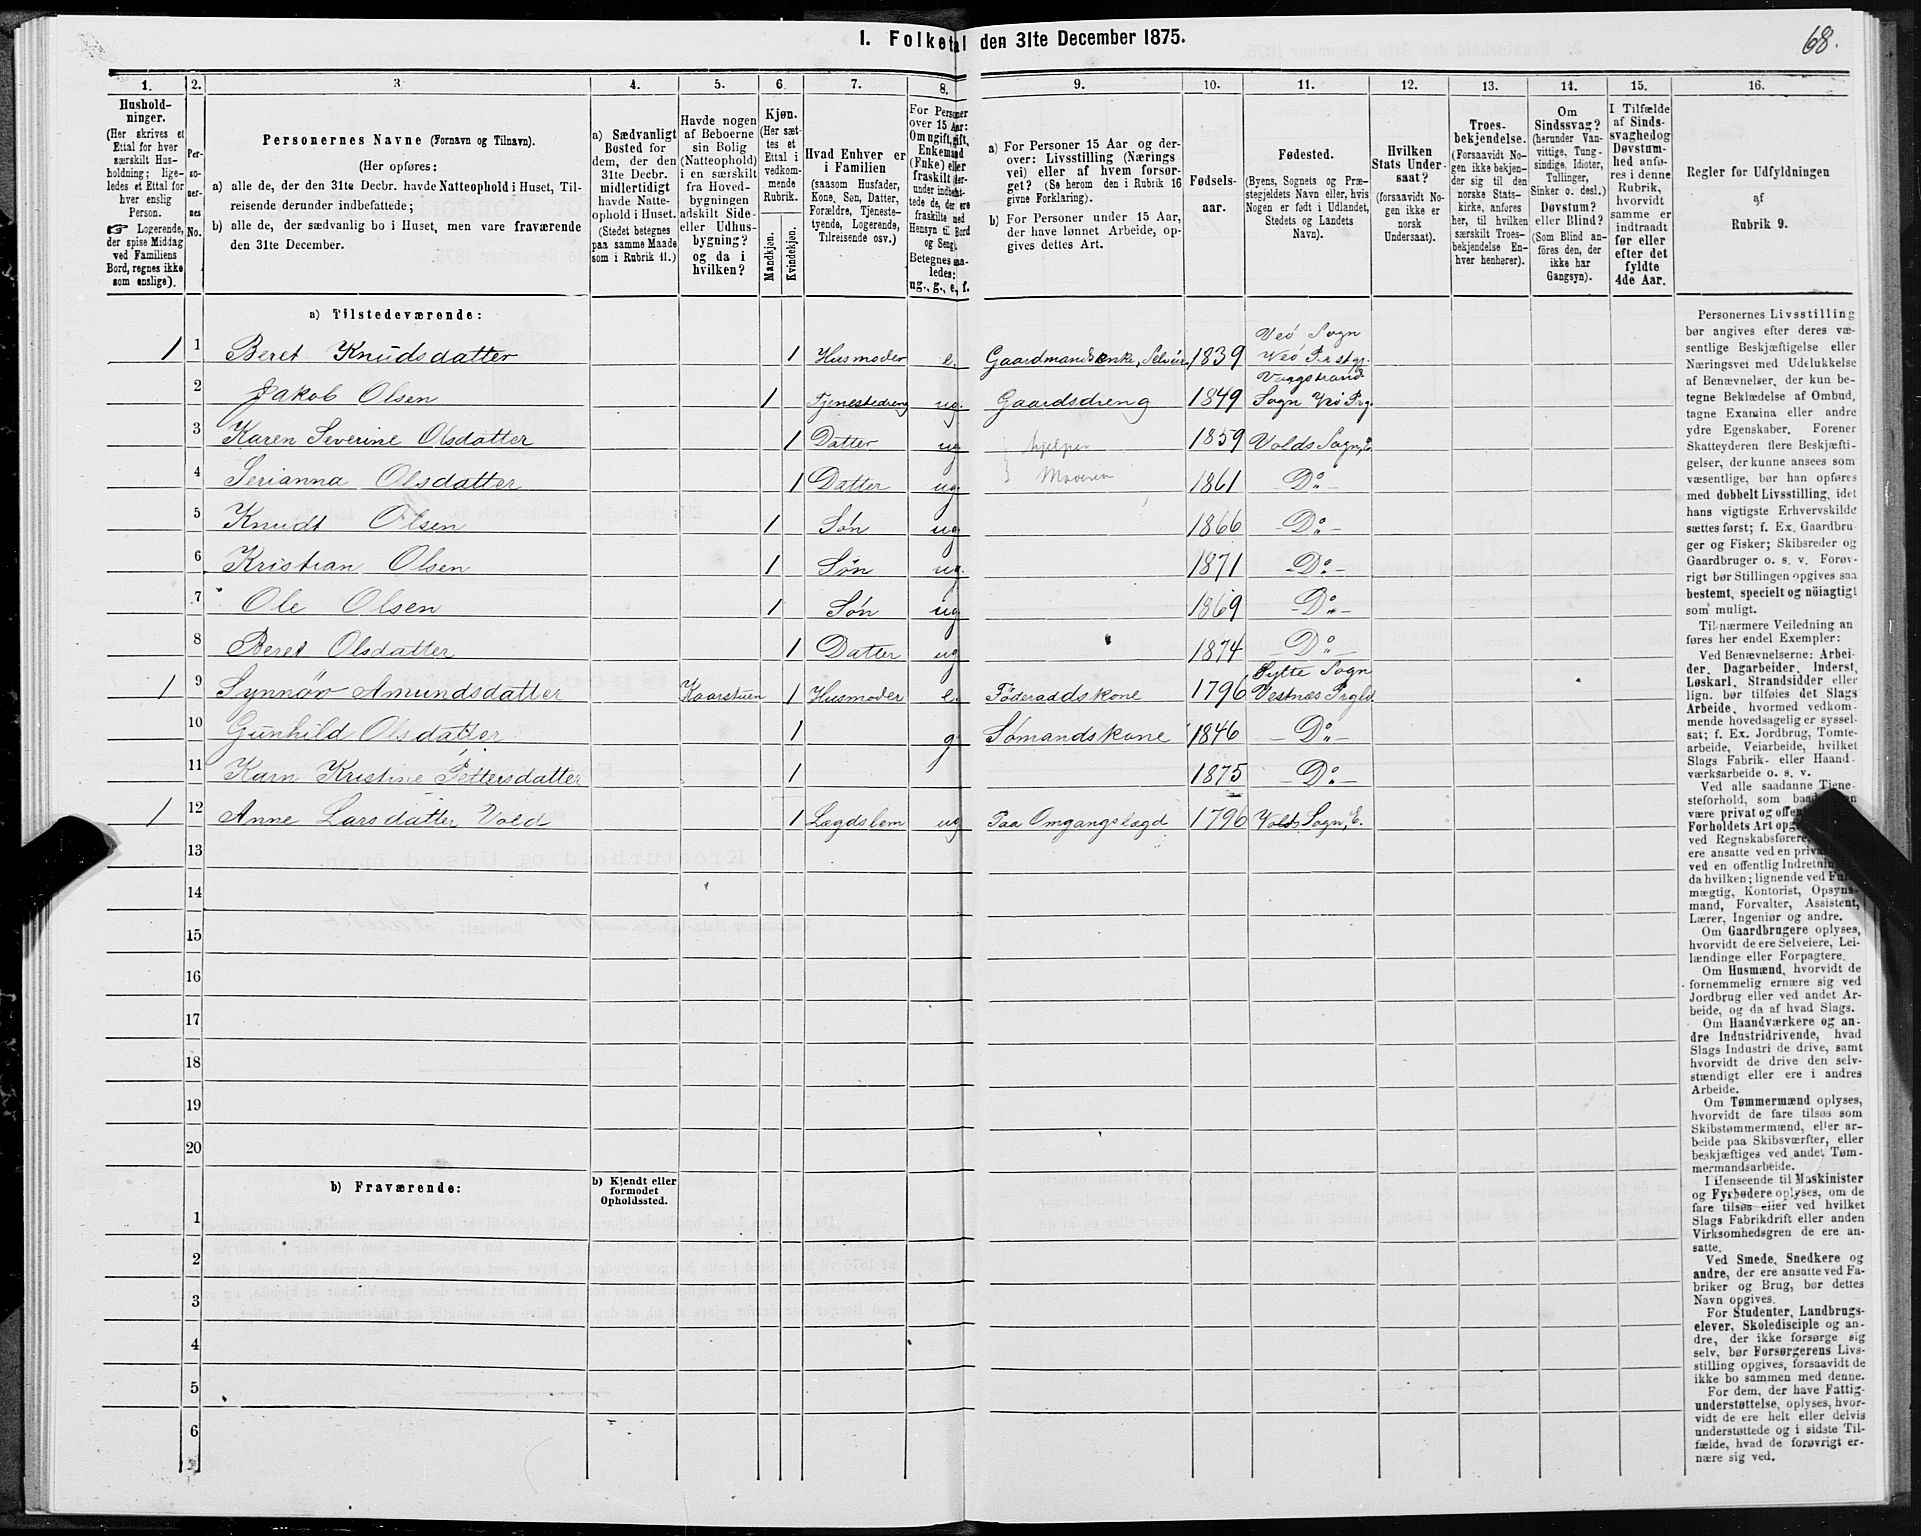 I. Folketal den 31te December 1875.
68.
1. 2. 3 4. 5. 6. 7. 8. 9. 10. 11. 12. 13. 14. 15. 16.
Hushold-
ninger.
(Her skrives et
Ettal for hver
særskilt Hus-
holdning; lige-
ledes et Ettal for
hver enslig
Person.
☞ Logerende,
der spise Middag
ved Familiens
Bord, regnes ikke
som enslige).
Per-
so-
ner-
nes
No.
Personernes Navne (Fornavn og Tilnavn).
(Her opføres:
a) alle de, der den 31te Decbr. havde Natteophold i Huset, Til-
reisende derunder indbefattede;
b) alle de, der sædvanlig bo i Huset, men vare fraværende
den 31te December.
a) Sædvanligt
Bosted for
dem, der den
31te Decbr.
midlertidigt
havde Natte-
ophold i Huset.
(Stedet betegnes
paa samme Maade
som i Rubrik 11.)
Havde nogen
af Beboerne
sin Bolig
(Natteophold)
i en særskilt
fra Hoved-
bygningen
adskilt Side-
eller Udhus-
bygning?
og da i
hvilken?
Kjøn.
(Her sæt-
tes et
Ettal i
vedkom-
mende
Rubrik.
Mandkjøn.
Kvindekjøn.
Hvad Enhver er
i Familien
(saasom Husfader,
Kone, Søn, Datter,
Forældre, Tjeneste-
tyende, Logerende,
Tilreisende osv.)
For Personer
over 15 Aar:
Om ugift, gift,
Enkemand
(Enke) eller
fraskilt
Hensyn til Bord
og Seng.
Betegnes saa-
ledes:
ug., g., e., f.
a) For Personer 15 Aar og der-
over: Livsstilling (Nærings
vei) eller af hvem forsør-
get? (Se herom den i Rubrik 16
givne Forklaring).
b) For Personer under 15 Aar,
der have lønnet Arbeide, op-
gives dettes Art.
Fødsels-
aar.
Fødested.
(Byens, Sognets og Præ-
stegjeldets Navn eller, hvis
Nogen er født i Udlandet,
Stedets og Landets
Navn).
Hvilken
Stats Under-
saat?
(forsaavidt No-
gen ikke er
norsk
Undersaat).
Troes-
bekjendelse.
(Forsaavidt No-
gen ikke bekjen-
der sig til den
norske Stats-
kirke, anføres
her, til hvilken
særskilt Troes-
bekjendelse En-
hver henhører).
Om
Sindssvag?
(herunder Van-
vittige, Tung-
sindige, Idioter,
Tullinger,
Sinker o. desl.)
Døvstum?
eller Blind?
(Som Blind an-
föres den, der
ikke har
Gangsyn).
I Tilfælde
af Sinds-
svaghed og
Døvstum-
hed anfø-
res i denne
Rubrik,
hvorvidt
samme er
indtraadt
før eller
efter det
fyldte
4de Aar.
Regler for Udfyldningen
af
Rubrik 9.
a) Tilstedeværende:
1 1 Beret Knudsdatter 1 Husmoder e. Gaardmandsenke, Selveier 1839 Veö Sogn Veö Prstgj.
2 Jakob Olsen 1 Tjenestedreng ug. Gaardsdreng 1849 Vaagstrand Sogn Veö Prg.
3 Karen Severine Olsdatter 1 Datter ug hjelper 1859 Volds Sogn, E.
4 Serianna Olsdatter 1 Datter ug Moderen 1861 - Do -
5 Knudt Olsen 1 Søn ug 1866 - Do -
6 Kristian Olsen 1 Søn ug. 1871 - Do -
7 Ole Olsen 1 Søn ug 1869 - Do -
8 Beret Olsdatter 1 Datter ug 1874 Do
1 9 Synnøv Amundsdatter Kaarstuen 1 Husmoder e. Föderaadskone 1796 Sylte Sogn Vestnæs Prgld
10 Gunhild Olsdatter 1 g Sømandskone 1846 - Do -
11 Karn Kristine Pettersdatter 1 1875 - Do -
1 12 Anne Larsdatter Vold 1 Lægdslem ug Paa Omgangslægd 1796 Volds Sogn, E.
13
14
15
16
17
18
19
20
b) Fraværende:
b) Kjendt eller
formodet
Opholdssted.
1
2
3
4
5
6
Personernes Livsstilling
bør angives efter deres væ-
sentlige Beskjæftigelse eller
Næringsvei med Udelukkelse
af Benævnelser, der kun be-
tegne Beklædelse af Ombud,
tagne Examina eller andre
ydre Egenskaber. Forener
Skatteyderen flere Beskjæfti-
gelser, der kunne ansees som
væsentlige, bør han opføres
med dobbelt Livsstilling, idet
hans vigtigste Erhvervskilde
sættes først; f. Ex. Gaardbru-
ger og Fisker; Skibsreder og
Gaardbruger o. s. v. Forøv-
rigt bør Stillingen opgives saa
bestemt, specielt og nöiagtigt
som muligt.
Til nærmere Veiledning an
føres her endel Exempler:
Ved Benævnelserne: Arbei-
der, Dagarbeider, Inderst,
Løskarl, Strandsidder eller
lign. bør tilföies det Slags
Arbeide, hvormed vedkom-
mende hovedsagelig er syssel-
sat; f. Ex. Jordbrug, Tomte-
arbeide, Veiarbeide, hvilket
Slags Fabrik- eller Haand
værksarbeide o. s. v.
Ved alle saadanne Tjene-
steforhold, som
være privat og
Forholdets Art
ved Regnskabsførere,
ere ansatte ved en
ved en offentlig
da hvilken; lignende ved
mægtig, Kontorist, Opsyns-
mand, Forvalter, Assistent,
Lærer, Ingeniør og andre.
Om Gaardbrugere oplyses,
hvorvidt de ere Selveiere, Lei-
lændinge eller Forpagtere.
Om Husmænd, hvorvidt de
fornemmelig ernære sig ved
Jordbrug eller ved andet Ar-
beide, og da af hvad Slags.
Om Haandværkere og an-
dre Industridrivende, hvad
Slags Industri de drive, samt
hvorvidt de drive den selv-
stændigt eller ere i andres
Arbeide.
Om Tømmermænd oplyses,
hvorvidt de fare tilsøs som
Skibstømmermænd, eller ar-
beide paa Skibsværfter, eller
beskjæftiges ved andet Tøm-
mermandsarbeide.
I Henseende til Maskinister
og Fyrbødere oplyses, om de
fare tilsøs eller ved hvilket
Slags Fabrikdrift eller anden
Virksomhedsgren de ere an-
satte.
Ved Smede, Snedkere og
andre, der ere ansatte ved Fa-
briker og Brug, bør dettes
Navn opgives.
For Studenter, Landbrugs-
elever, Skoledisciple og an-
dre, der ikke forsørge sig
selv, bør Forsørgerens Livs-
stilling opgives, forsaavidt de
ikke bo sammen med denne.
For dem, der have Fattig-
understøttelse, oplyses, hvor-
vidt de ere helt eller delvis
understøttede og i sidste Til-
fælde, hvad de forøvrigt er-
nære sig ved.